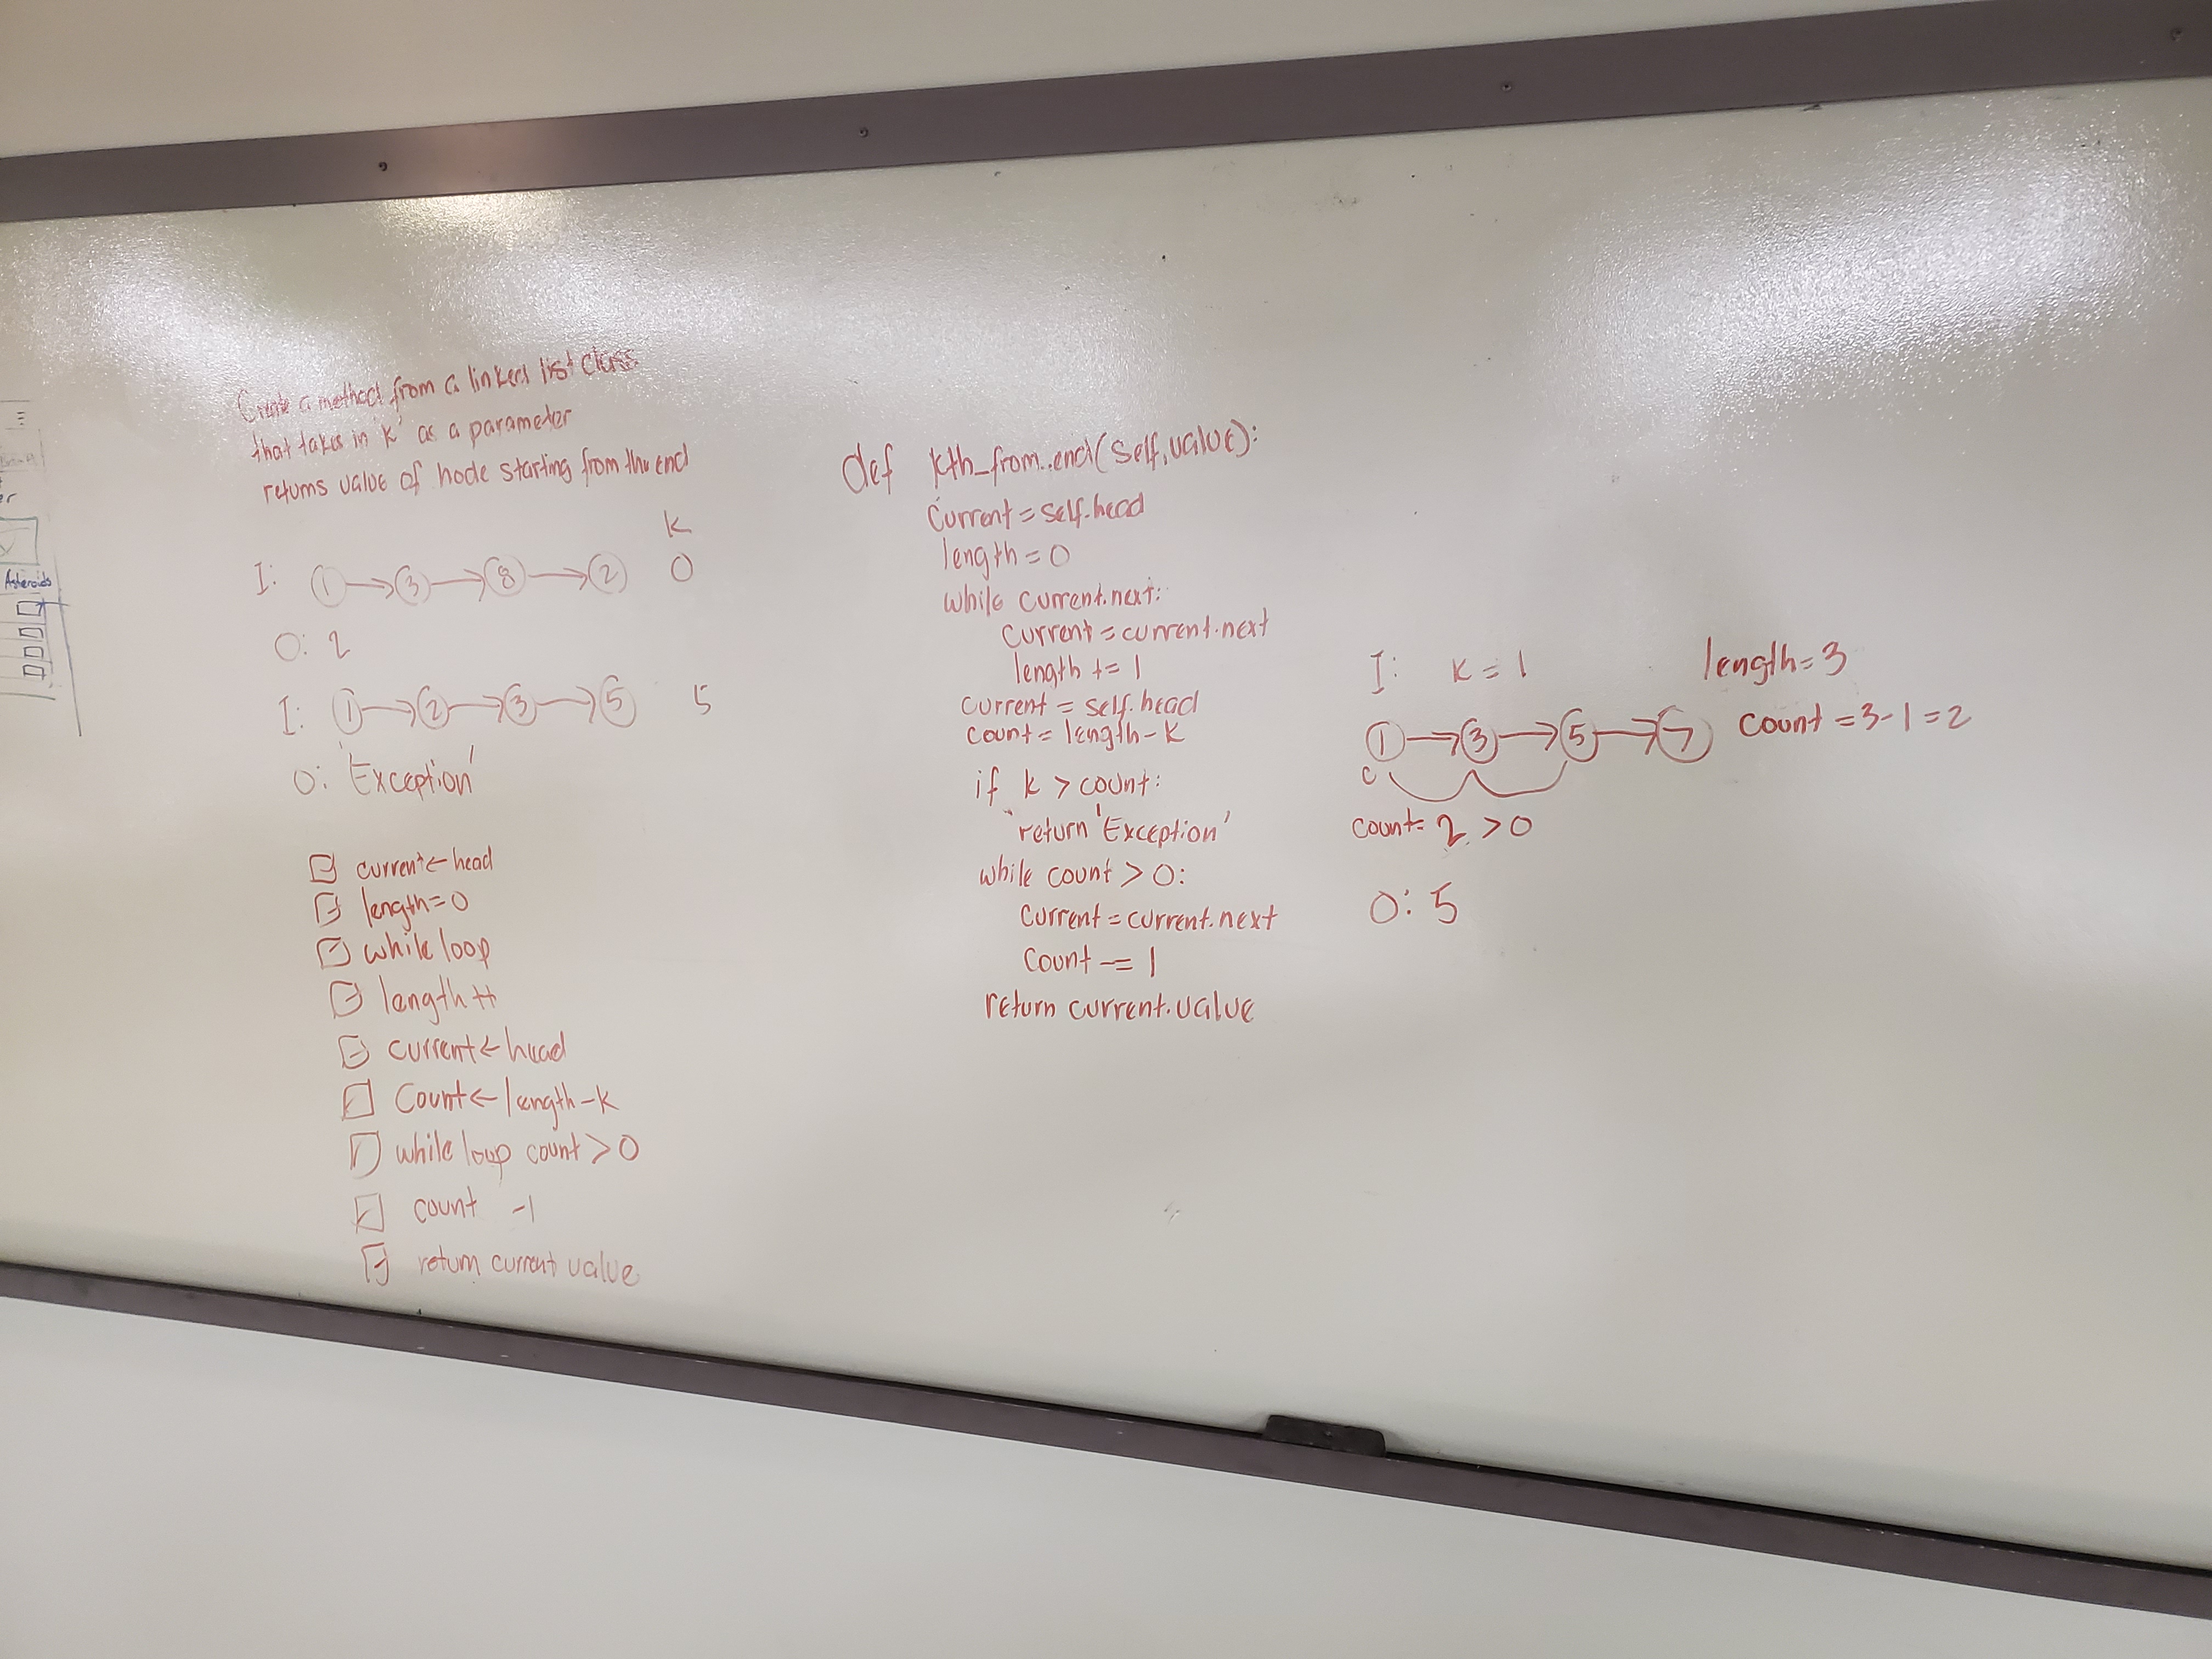 Create a method from a linked list class
that takes in 'k' as a parameter
returns value of node starting from the end
K
I: 1 → 3 → 8 → 2 0
O: 2
I: 1 → 2 → 3 → 5 5
O: 'Exception'
current ← head
length = 0
while loop
length ++
current ← head
Count ← length - k
while loop count > 0
count -1
return current value
def kth_from_end(self, value):
Current = self.head
length = 0
while current.next:
Current = current.next
length += 1
current = self.head
count = length - k
if k > count:
return 'Exception'
while count > 0:
Current = current.next
Count -= 1
return current.value
I: K = 1 length = 3
1 → 3 → 5 → 7 Count = 3 - 1 = 2
C
count = 2 > 0
O: 5
Asteroids